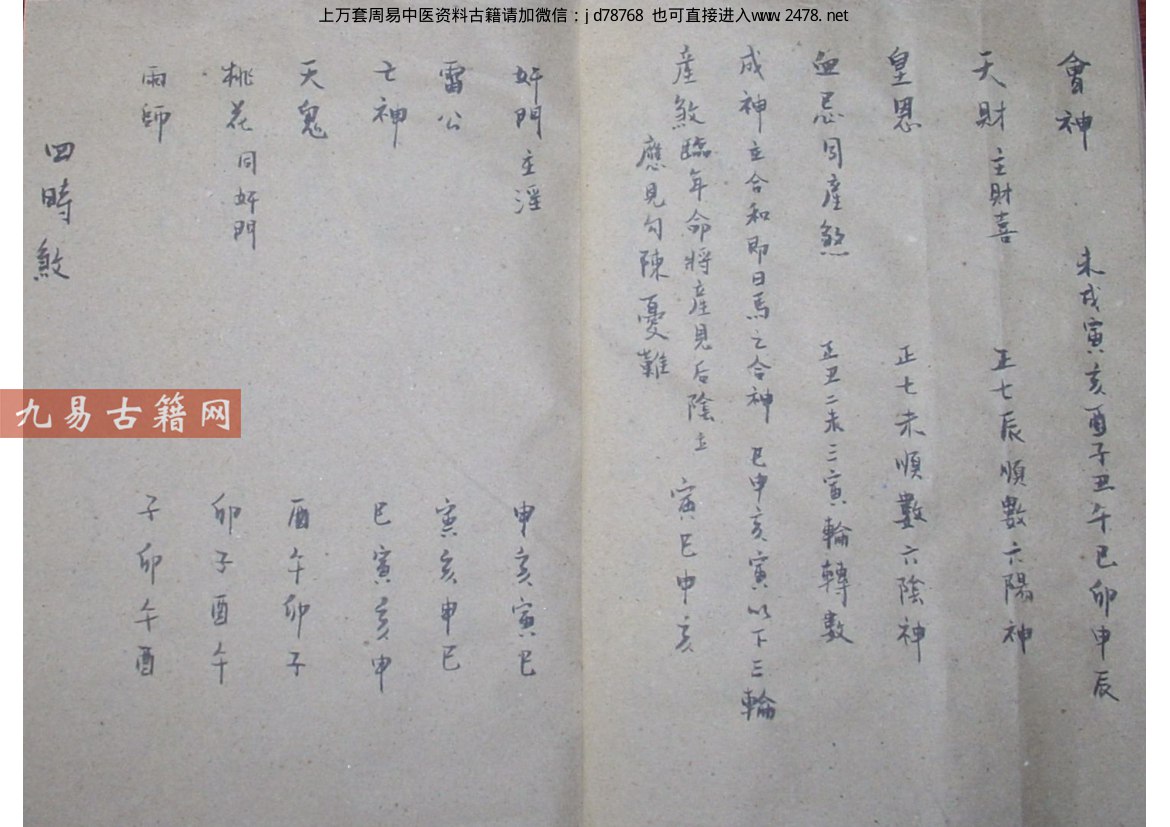 上万套周易中医资料古籍请加微信：jd78768 也可直接进入www.2478.net
會神 未戌寅亥酉子丑午巳卯申辰
天財 主財喜 正七辰順數六陽神
皇恩 正七未順數六陰神
血忌同產煞 正丑二未三寅輪轉數
成神主合和即日馬之合神 巳申亥寅以下三輪
產煞臨年命將產見后陰主 寅巳申亥
應見勾陳憂難
奸門主淫 申亥寅巳
雷公 寅亥申巳
亡神 巳寅亥申
天鬼 酉午卯子
桃花同奸門 卯子酉午
雨師 子卯午酉
四時煞
九易古籍网